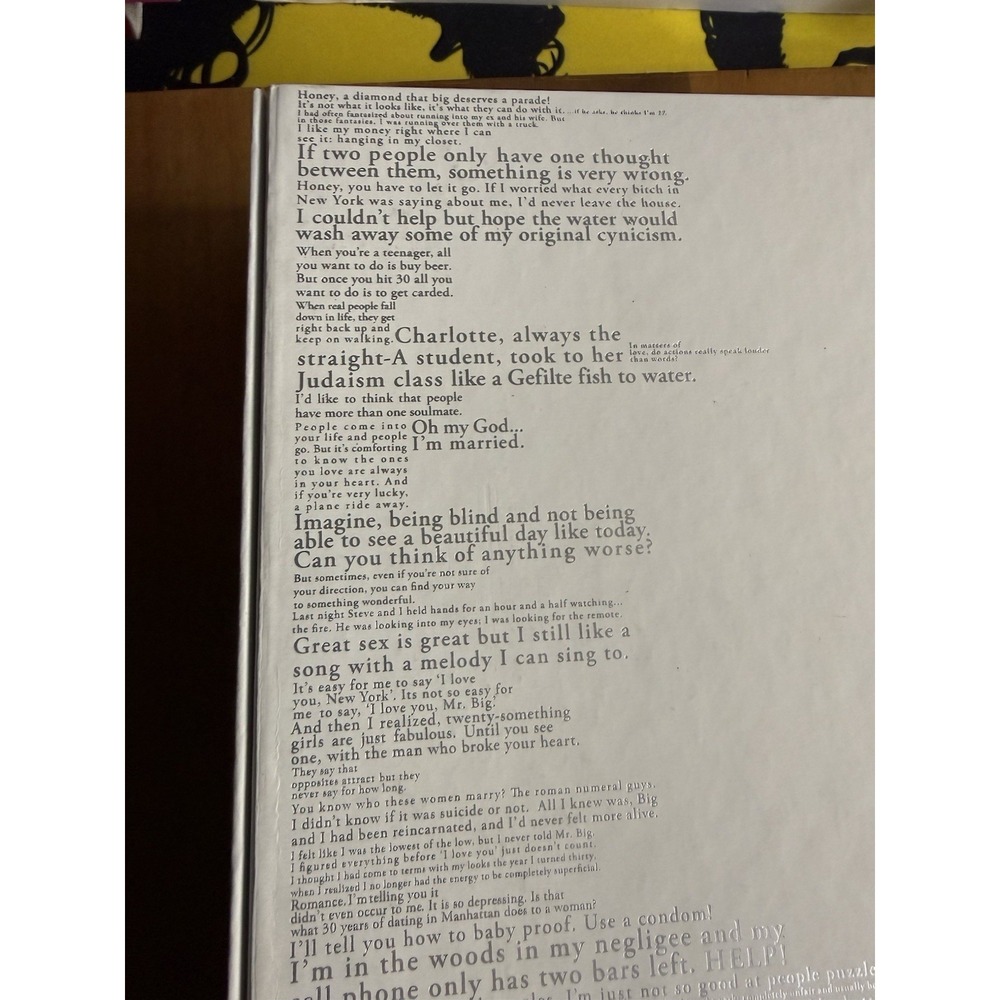 Honey, a diamond that big deserves a parade!
It's not what it looks like, it's what they can do with it. ...if he asks, he thinks I'm
I had often fantasized about running into my ex and his wife. But
in those fantasies, I was running over them with a truck.
I like my money right where I can
see it: hanging in my closet.
If two people only have one thought
between them, something is very wrong.
Honey, you have to let it go. If I worried what every bitch in
New York was saying about me, I'd never leave the house.
I couldn't help but hope the water would
wash away some of my original cynicism.
When you're a teenager, all
you want to do is buy beer.
But once you hit 30 all you
want to do is to get carded.
When real people fall
down in life, they get
right back up and
keep on walking.
Charlotte, always the
straight-A student, took to her
Judaism class like a Gefilte fish to water.
In matters of
love, do actions really speak louder
than words?
I'd like to think that people
have more than one soulmate.
People come into
your life and people
go. But it's comforting
to know the ones
you love are always
in your heart. And
if you're very lucky,
a plane ride away.
Oh my God...
I'm married.
Imagine, being blind and not being
able to see a beautiful day like today.
Can you think of anything worse?
But sometimes, even if you're not sure of
your direction, you can find your way
to something wonderful.
Last night Steve and I held hands for an hour and a half watching...
the fire. He was looking into my eyes; I was looking for the remote.
Great sex is great but I still like a
song with a melody I can sing to.
It's easy for me to say 'I love
you, New York'. Its not so easy for
me to say, 'I love you, Mr. Big.'
And then I realized, twenty-something
girls are just fabulous. Until you see
one, with the man who broke your heart.
They say that
opposites attract but they
never say for how long.
You know who these women marry? The roman numeral guys.
I didn't know if it was suicide or not. All I knew was, Big
and I had been reincarnated, and I'd never felt more alive.
I felt like I was the lowest of the low, but I never told Mr. Big.
I figured everything before 'I love you' just doesn't count.
I thought I had come to terms with my looks the year I turned thirty,
when I realized I no longer had the energy to be completely superficial.
Romance. I'm telling you it
didn't even occur to me. It is so depressing. Is that
what 30 years of dating in Manhattan does to a woman?
I'll tell you how to baby proof. Use a condom!
I'm in the woods in my negligee and my
cell phone only has two bars left. HELP!
I'm just not so good at people puzzle
completely unfair and usually